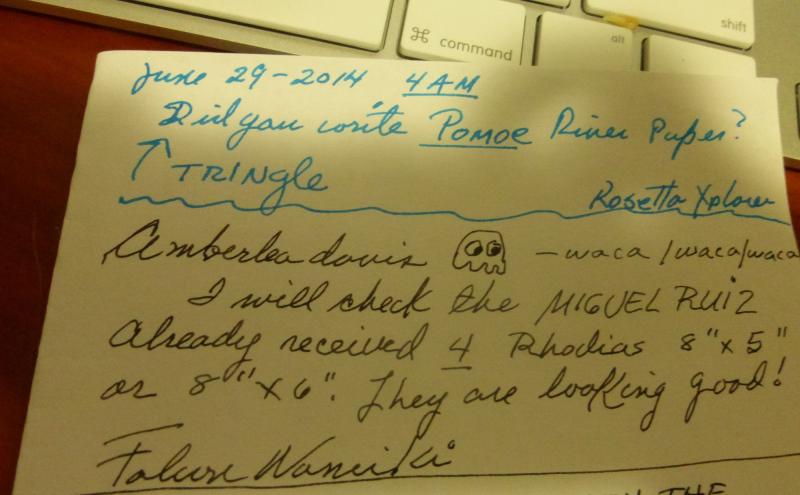 shift
alt
⌘ command
June 29-2014 4AM
Did you write Pomoe River Paper?
↑ TRINGLE
Rosetta Xplorer
Amberlea davis - waca / waca/waca
I will check the MIGUEL RUIZ
Already received 4 Rhodias 8"x 5"
or 8"x6". They are looking good!
THE